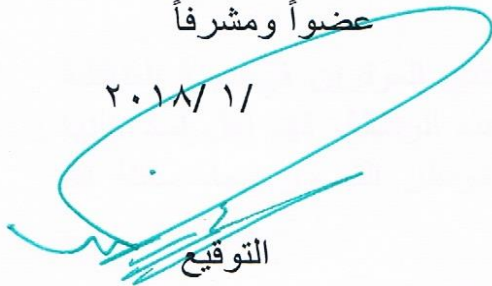 عضواً ومشرفاً
/١ /٢٠١٨
التوقيع